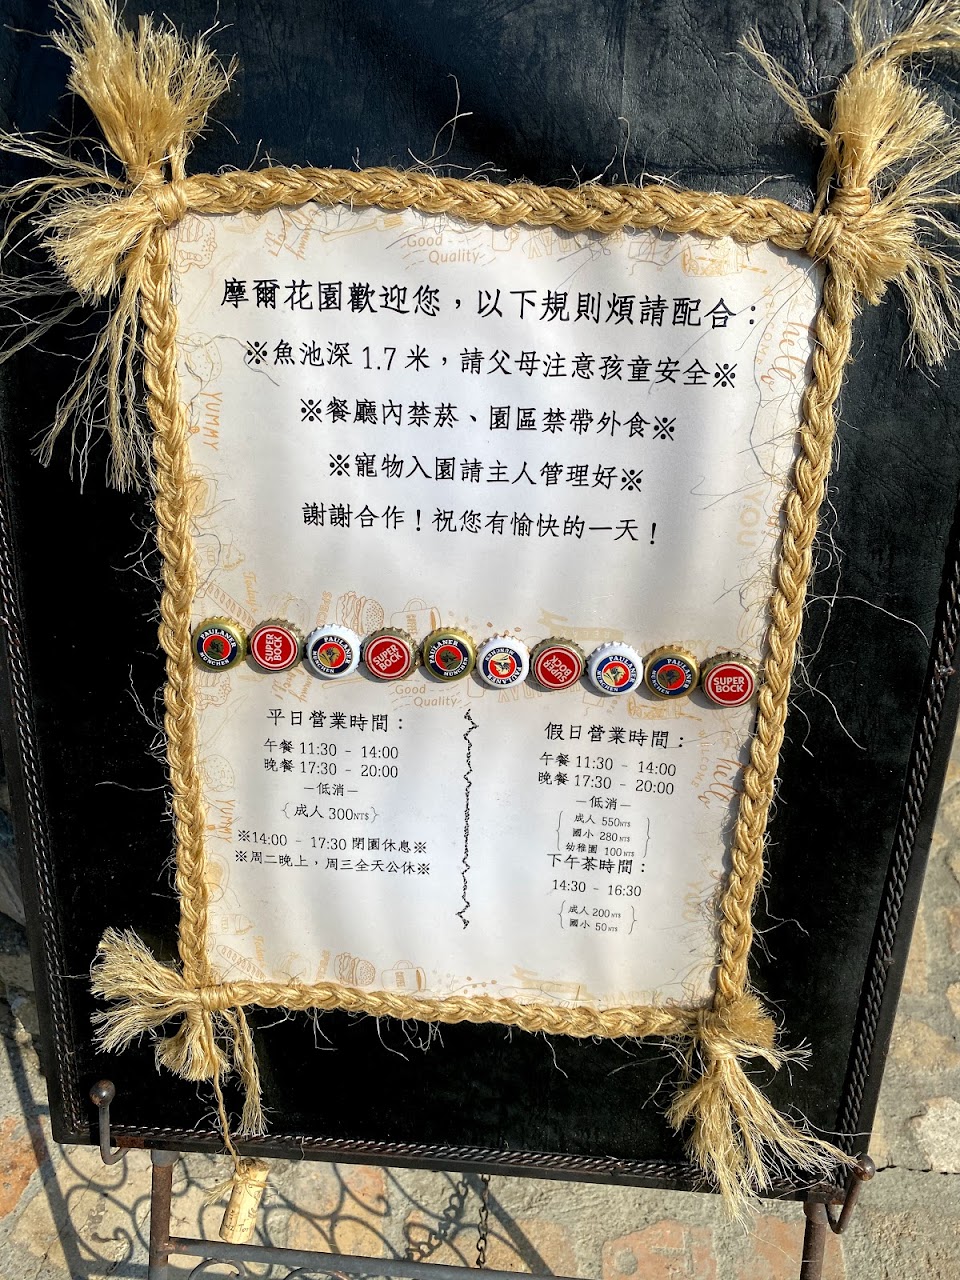 Good
Quality
摩爾花園歡迎您，以下規則煩請配合：
※魚池深 1.7 米，請父母注意孩童安全※
※餐廳內禁菸、園區禁帶外食※
※寵物入園請主人管理好※
謝謝合作！祝您有愉快的一天！
hello
YUMMY
YOU
PAULANER MÜNCHEN
SUPER BOCK
PAULANER MÜNCHEN
SUPER BOCK
PAULANER MÜNCHEN
PAULANER MÜNCHEN
SUPER BOCK
PAULANER MÜNCHEN
PAULANER MÜNCHEN
SUPER BOCK
Good
Quality
平日營業時間：
午餐 11:30 - 14:00
晚餐 17:30 - 20:00
—低消—
{成人 300NT$}
※14:00 - 17:30 閉園休息※
※周二晚上，周三全天公休※
假日營業時間：
午餐 11:30 - 14:00
晚餐 17:30 - 20:00
—低消—
成人 550NT$
國小 280NT$
幼稚園 100NT$
下午茶時間：
14:30 - 16:30
成人 200NT$
國小 50NT$
WELCOME
hello
YUMMY